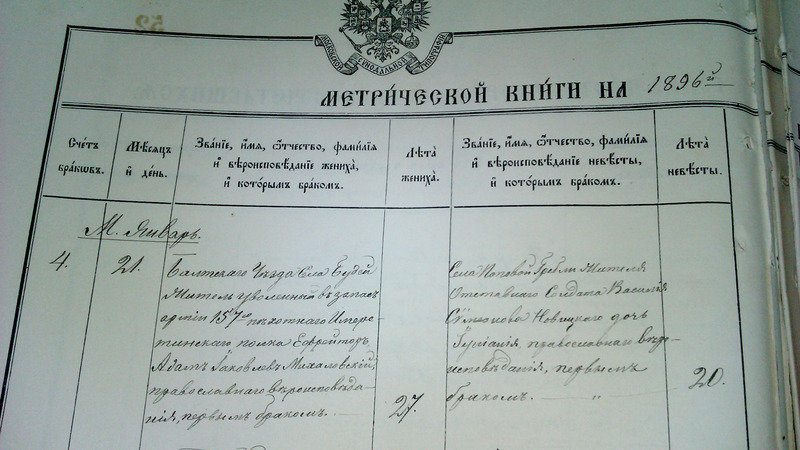 52
МОСКОВСКОЙ СѴНОДАЛЬНОЙ ТИПОГРАФІИ
МЕТРИ́ЧЕСКОЙ КНИ́ГИ НА 1896й
Сче́тъ бра́кѡвъ.
Мѣ́сѧцъ и҆ де́нь.
Зва́нїе, и҆́мѧ, ѻ҆́тчество, фамі́лїѧ и҆ вѣроисповѣ́данїе жениха̀, и҆ кото́рымъ бра́комъ.
Лѣ̑та жениха̀.
Зва́нїе, и҆́мѧ, ѻ҆́тчество, фамі́лїѧ и҆ вѣроисповѣ́данїе невѣ́сты, и҆ кото́рымъ бра́комъ.
Лѣ̑та невѣ́сты.
М. Январь.
4.
21.
Балтскаго Уѣзда Села Будей
Житель уволенный въ запасъ
арміи 157го пѣхотнаго Имере-
тинскаго полка Ефрейторъ
Адамъ Яковлевъ Михаловскій,
православнаго вѣроисповѣда-
нія, первымъ бракомъ.
27.
Села Поповой Гребли Жителя
Отставнаго Солдата Василія
Сѵмеонова Новицкаго дочь
Іуліанія, православнаго вѣро-
исповѣданія, первымъ
бракомъ.
20.